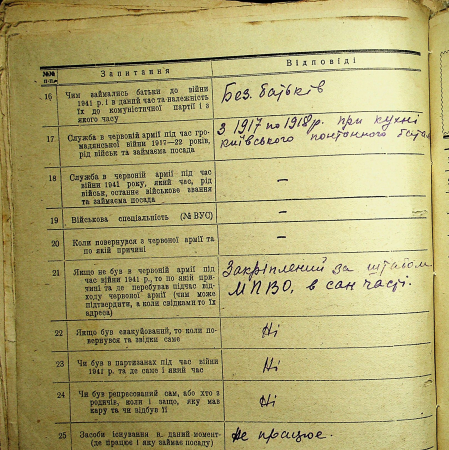 №№ п.п.
Запитання
Відповіді
16
Чим займались батьки до війни
1941 р. і в даний час та належність
їх до комуністичної партії і з
якого часу
Без батьків
17
Служба в червоній армії під час гро-
мадянської війни 1917—22 років,
рід військ та займаєма посада
З 1917 по 1918 р. при кухні
київського понтонного
18
Служба в червоній армії під час
війни 1941 року, який час, рід
військ, останнє військове звання
та займаєма посада
–
19
Військова спеціяльність (№ ВУС)
–
20
Коли повернувся з червоної армії та
по якій причині
–
21
Якщо не був в червоній армії під
час війни 1941 р., то по якій при-
чині та де перебував підчас від-
ходу червоної армії (чим може
підтвердити, а коли свідками то їх
адреса)
Закріплений за штабом
МПВО, в сан часті.
22
Якщо був евакуйований, то коли по-
вернувся та звідки саме
Ні
23
Чи був в партизанах під час війни
1941 р. та де саме і який час
Ні
24
Чи був репресований сам, або хто з
родичів, коли і защо, яку мав
кару та чи відбув її
Ні
25
Засоби існування н. даний момент-
(де працює і яку займає посаду)
Не працює.